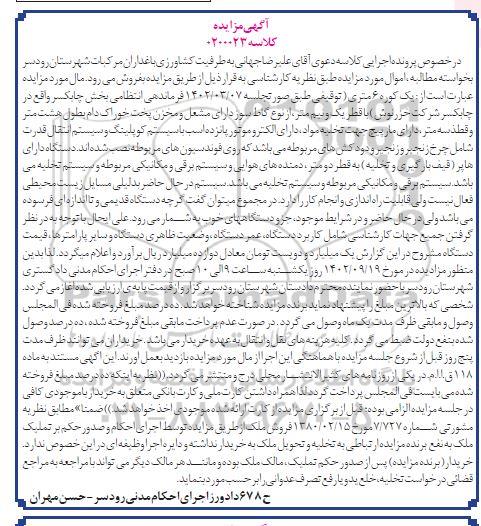 آگهی مزایده
کلاسه ۰۲۰۰۰۲۳
در خصوص پرونده اجرایی کلاسه دعوی آقای علیرضا جهانی به طرفیت کشاورزی باغداران مرکبات شهرستان رودسر
بخواسته مطالبه، اموال مورد مزایده طبق نظریه کارشناسی به قرار ذیل از طریق مزایده بفروش می رود. مال مورد مزایده
عبارت است از: یک کوره ۶ متری ( توقیفی طبق صور تجلسه ۱۴۰۲/۰۳/۰۷ فرماندهی انتظامی بخش چابکسر واقع در
چابکسر شرکت خزرنوش) با قطر یک و نیم متر، از نوع کاغذ سوز دارای مشعل و مخزن پخت خوراک دام بطول هشت متر
و قطر سه متر، دارای مارپیچ جهت تخلیه مواد، دارای الکترو موتور پانزده اسب با سیستم کوپلینگ و سیستم انتقال قدرت
شامل چرخ زنجیر و زنجیر و دودکش های مربوطه می باشد که روی فوندسیون های مربوطه نصب شده اند. دستگاه دارای
هاپر (قیف بارگیری و تخلیه) به قطر دو متر، دمنده های هوایی و سیستم برقی و مکانیکی مربوطه و سیستم تخلیه می
باشد. سیستم برقی و مکانیکی مربوطه و سیستم تخلیه می باشد. سیستم در حال حاضر بدلیلی مسایل زیست محیطی
فعال نیست ولی قابلیت راه اندازی و انجام کار را دارد. در مجموع میتوان گفت گرچه دستگاه قدیمی و تا اندازه ای فرسوده
می باشد ولی در حال حاضر و در شرایط موجود، جزو دستگاههای خوب به شمار می رود. علی ایحال با توجه به در نظر
گرفتن جمیع جهات کارشناسی شامل کاربرد دستگاه، عمر دستگاه، وضعیت ظاهری دستگاه و سایر پارامترها، قیمت
دستگاه مشروح در این گزارش یک میلیارد و دویست تومان معادل دوازده میلیارد ریال برآورد و اعلام میگردد. لذا بدین
منظور مزایده در مورخ ۱۴۰۲/۰۹/۱۹ روز یکشنبه ساعت ۹ الی ۱۰ صبح در دفتر اجرای احکام مدنی دادگستری
شهرستان رودسر با حضور نماینده محترم دادستان شهرستان رودسر برگزار و از قیمت پایه ی ارزیابی شده آغاز می گردد.
شخصی که بالاترین مبلغ را پیشنهاد نماید برنده مزایده شناخته خواهد شد. ده درصد مبلغ فروخته شده فی المجلس
وصول و مابقی ظرف مدت یک ماه وصول می گردد. در صورت عدم پرداخت مابقی مبلغ فروخته شده، ده درصد وصول
شده بنفع دولت ضبط می گردد. کلیه هزینه های نقل و انتقال به عهده خریدار می باشد. خریداران می توانند ظرف مدت
پنج روز قبل از شروع جلسه مزایده با هماهنگی این اجرا از مال مورد مزایده بازدید بعمل اورند. این اگهی مستند به ماده
۱۱۸ ق.ا.ا.م. در یکی از روزنامه های کثیر الانتشار محلی درج و منتشر می گردد. ((نظر به اینکه ده درصد مبلغ فروخته
شده می بایست فی المجلس پرداخت گردد لذا همراه داشتن کارت ملی و کارت بانکی متعلق به خریدار با موجودی کافی
در جلسه مزایده الزامی بوده؛ قبل از برگزاری مزایده از کارت ارائه شده موجودی اخذ خواهد شد.)) ضمنا» مطابق نظریه
مشورتی شماره ۷/۷۲۷ مورخ ۱۳۸۰/۰۲/۱۵ فروش ملک از طریق مزایده توسط اجرای احکام و صدور حکم بر تملیک
ملک به نفع برنده مزایده ارتباطی به تخلیه و تحویل ملک به خریدار نداشته و دایره اجرا وظیفه ای در این خصوص ندارد.
خریدار (برنده مزایده) پس از صدور حکم تملیک، مالک ملک بوده و مانند هر مالک دیگر می تواند با مراجعه به مراجع
قضائی درخواست تخلیه، خلع ید و یا رفع تصرف عدوانی را بر حسب مورد بنماید.
ح ۶۷۸ دادورز اجرای احکام مدنی رودسر - حسن مهران